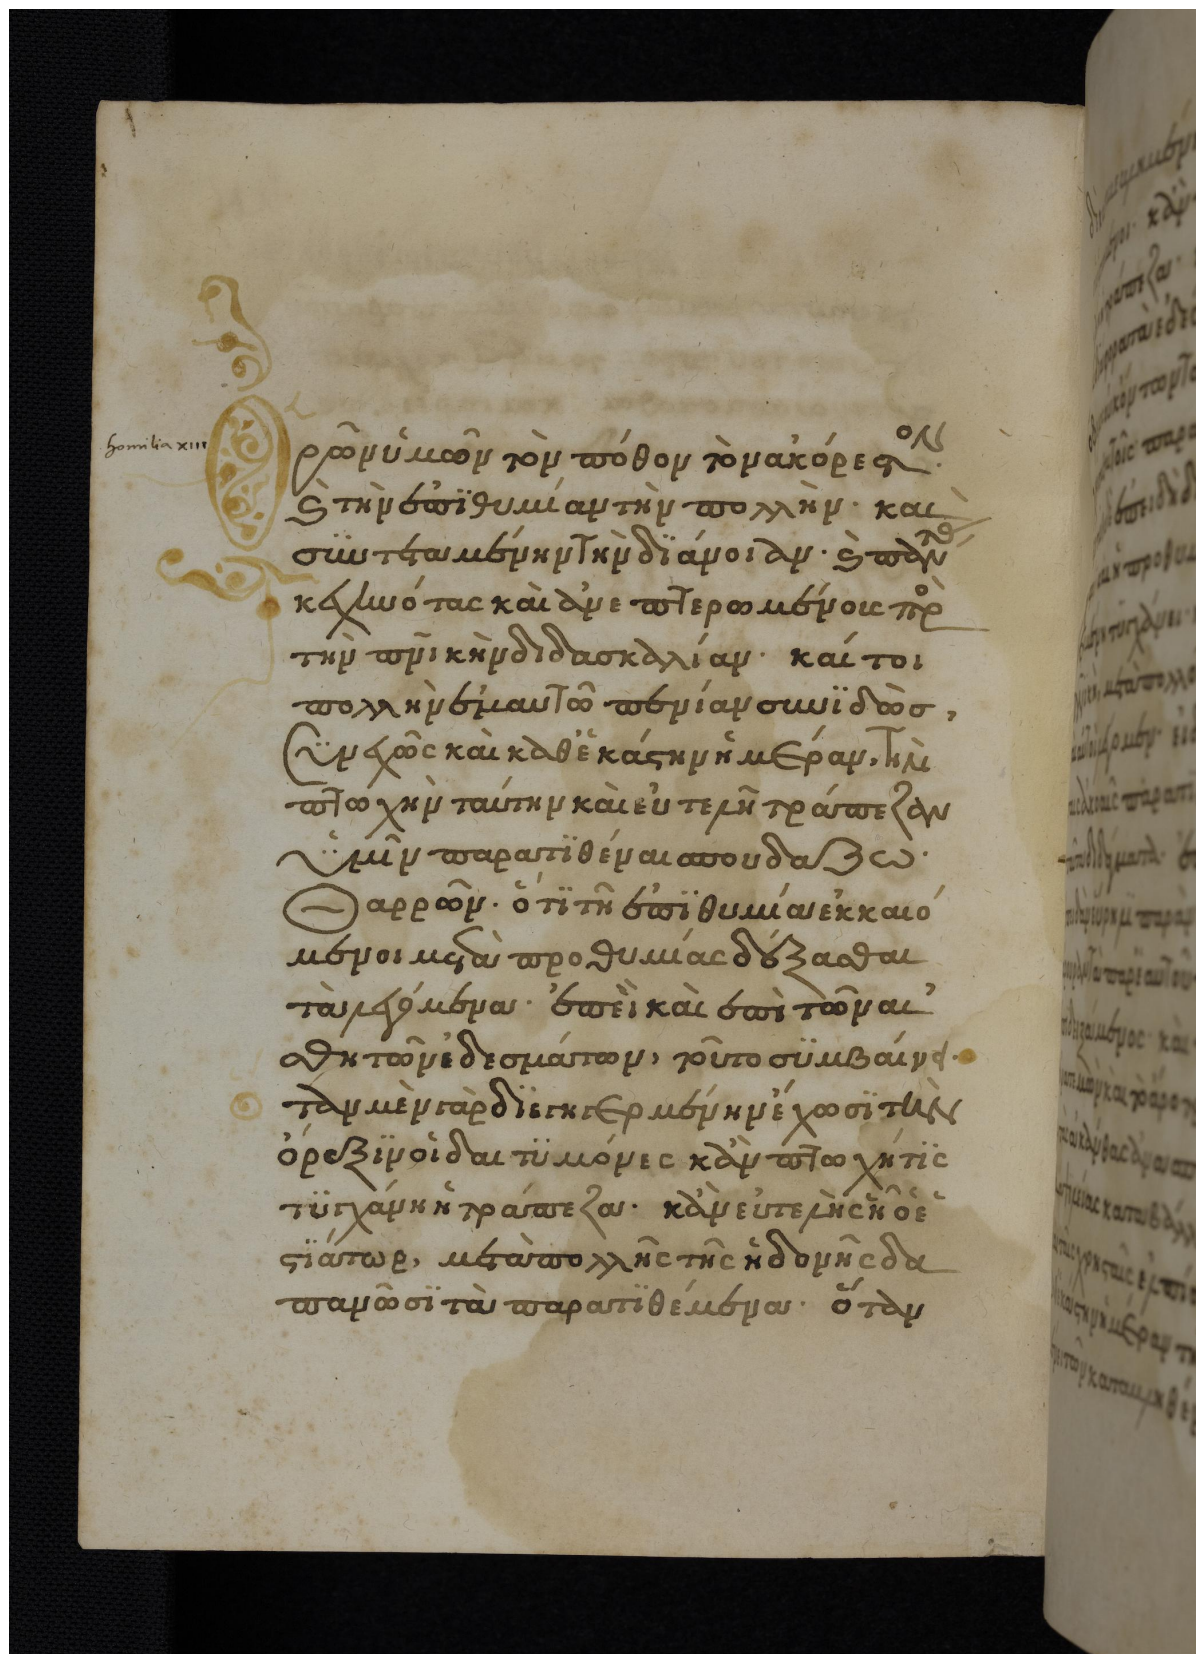 homilia XIII
Ὁρῶν ὑμῶν τὸν πόθον τὸν ἀκόρεστον·
καὶ τὴν ἐπϊθυμίαν τὴν πολλὴν· καὶ
συντεταμένην τὴν δϊάνοιαν· καὶ πάντας
κεχηνότας καὶ ἀνεπτερωμένοις πρὸς
τὴν πνικὴν διδασκαλίαν· καί τοι
πολλὴν ἐμαυτῶ πενίαν συνϊδὼσ,
συνεχῶς καὶ καθ ἑκάστην ἡμέραν, τὴν
πτωχὴν ταύτην καὶ εὐτελῆ τράπεζαν
ὑμῖν παρατϊθέναι σπουδάζω·
Θαρρῶν· ὅτϊ τῆ ἐπϊθυμία ἐκκαιό
μενοι μετὰ προθυμίας δέξασθαι
τὰ λεγόμενα· ἐπεὶ καὶ ἐπὶ τῶν αἰ
σθητῶν ἐδεσμάτων, τοῦτο συμβαίνει·
τὰν μὲν γὰρ δϊεγηγερμένην ἔχωσϊ τὴν
ὄρεξιν οἱ δαιτϋμόνες κἂν πτωχή τϊς
τϋγχάνη ἡ τράπεζα· κἂν εὐτελὴς ἦ ὁ ἑ
στϊάτωρ, μετὰ πολλῆς τῆς ἡδονῆς δα
πανῶσϊ τὰ παρατϊθέμενα· ὅταν